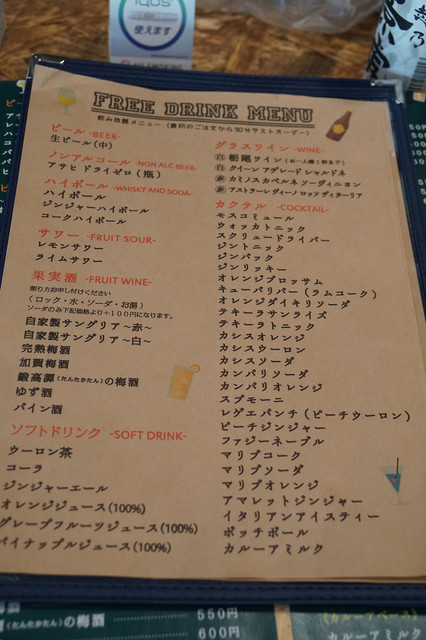 IQOS
使えます
FREE DRINK MENU
飲み放題メニュー (最初のご注文から90分ラストオーダー)
ビール -BEER-
生ビール(中)
ノンアルコール -NON ALC BEER-
アサヒ ドライゼロ(瓶)
ハイボール -WHISKY AND SODA-
ハイボール
ジンジャーハイボール
コークハイボール
サワー -FRUIT SOUR-
レモンサワー
ライムサワー
果実酒 -FRUIT WINE-
割り方お申し付けください
(ロック・水・ソーダ・お湯)
ソーダのみ下記価格より+100円になります。
自家製サングリア~赤~
自家製サングリア~白~
完熟梅酒
加賀梅酒
鍛高譚(たんたかたん)の梅酒
ゆず酒
パイン酒
ソフトドリンク -SOFT DRINK-
ウーロン茶
コーラ
ジンジャーエール
オレンジジュース(100%)
グレープフルーツジュース(100%)
パイナップルジュース(100%)
グラスワイン -WINE-
白 朝尾ワイン(お一人様1杯まで)
白 クイーン アデレード シャルドネ
赤 カミノスカベルネ ソーヴィニヨン
赤 アストラーレ ディーノ ロッソ ディターリア
カクテル -COCKTAIL-
モスコミュール
ウォッカトニック
スクリュードライバー
ジントニック
ジンバック
ジンリッキー
オレンジブロッサム
キューバリバー(ラムコーク)
オレンジダイキリソーダ
テキーラサンライズ
テキーラトニック
カシスオレンジ
カシスウーロン
カシスソーダ
カンパリソーダ
カンパリオレンジ
スプモーニ
レゲエパンチ(ピーチウーロン)
ピーチジンジャー
ファジーネーブル
マリブコーク
マリブソーダ
マリブオレンジ
アマレットジンジャー
イタリアンアイスティー
ボッチボール
カルーアミルク
(たんたかたん)の梅酒 550円
600円
(カルーアベース)
カルーアミルク